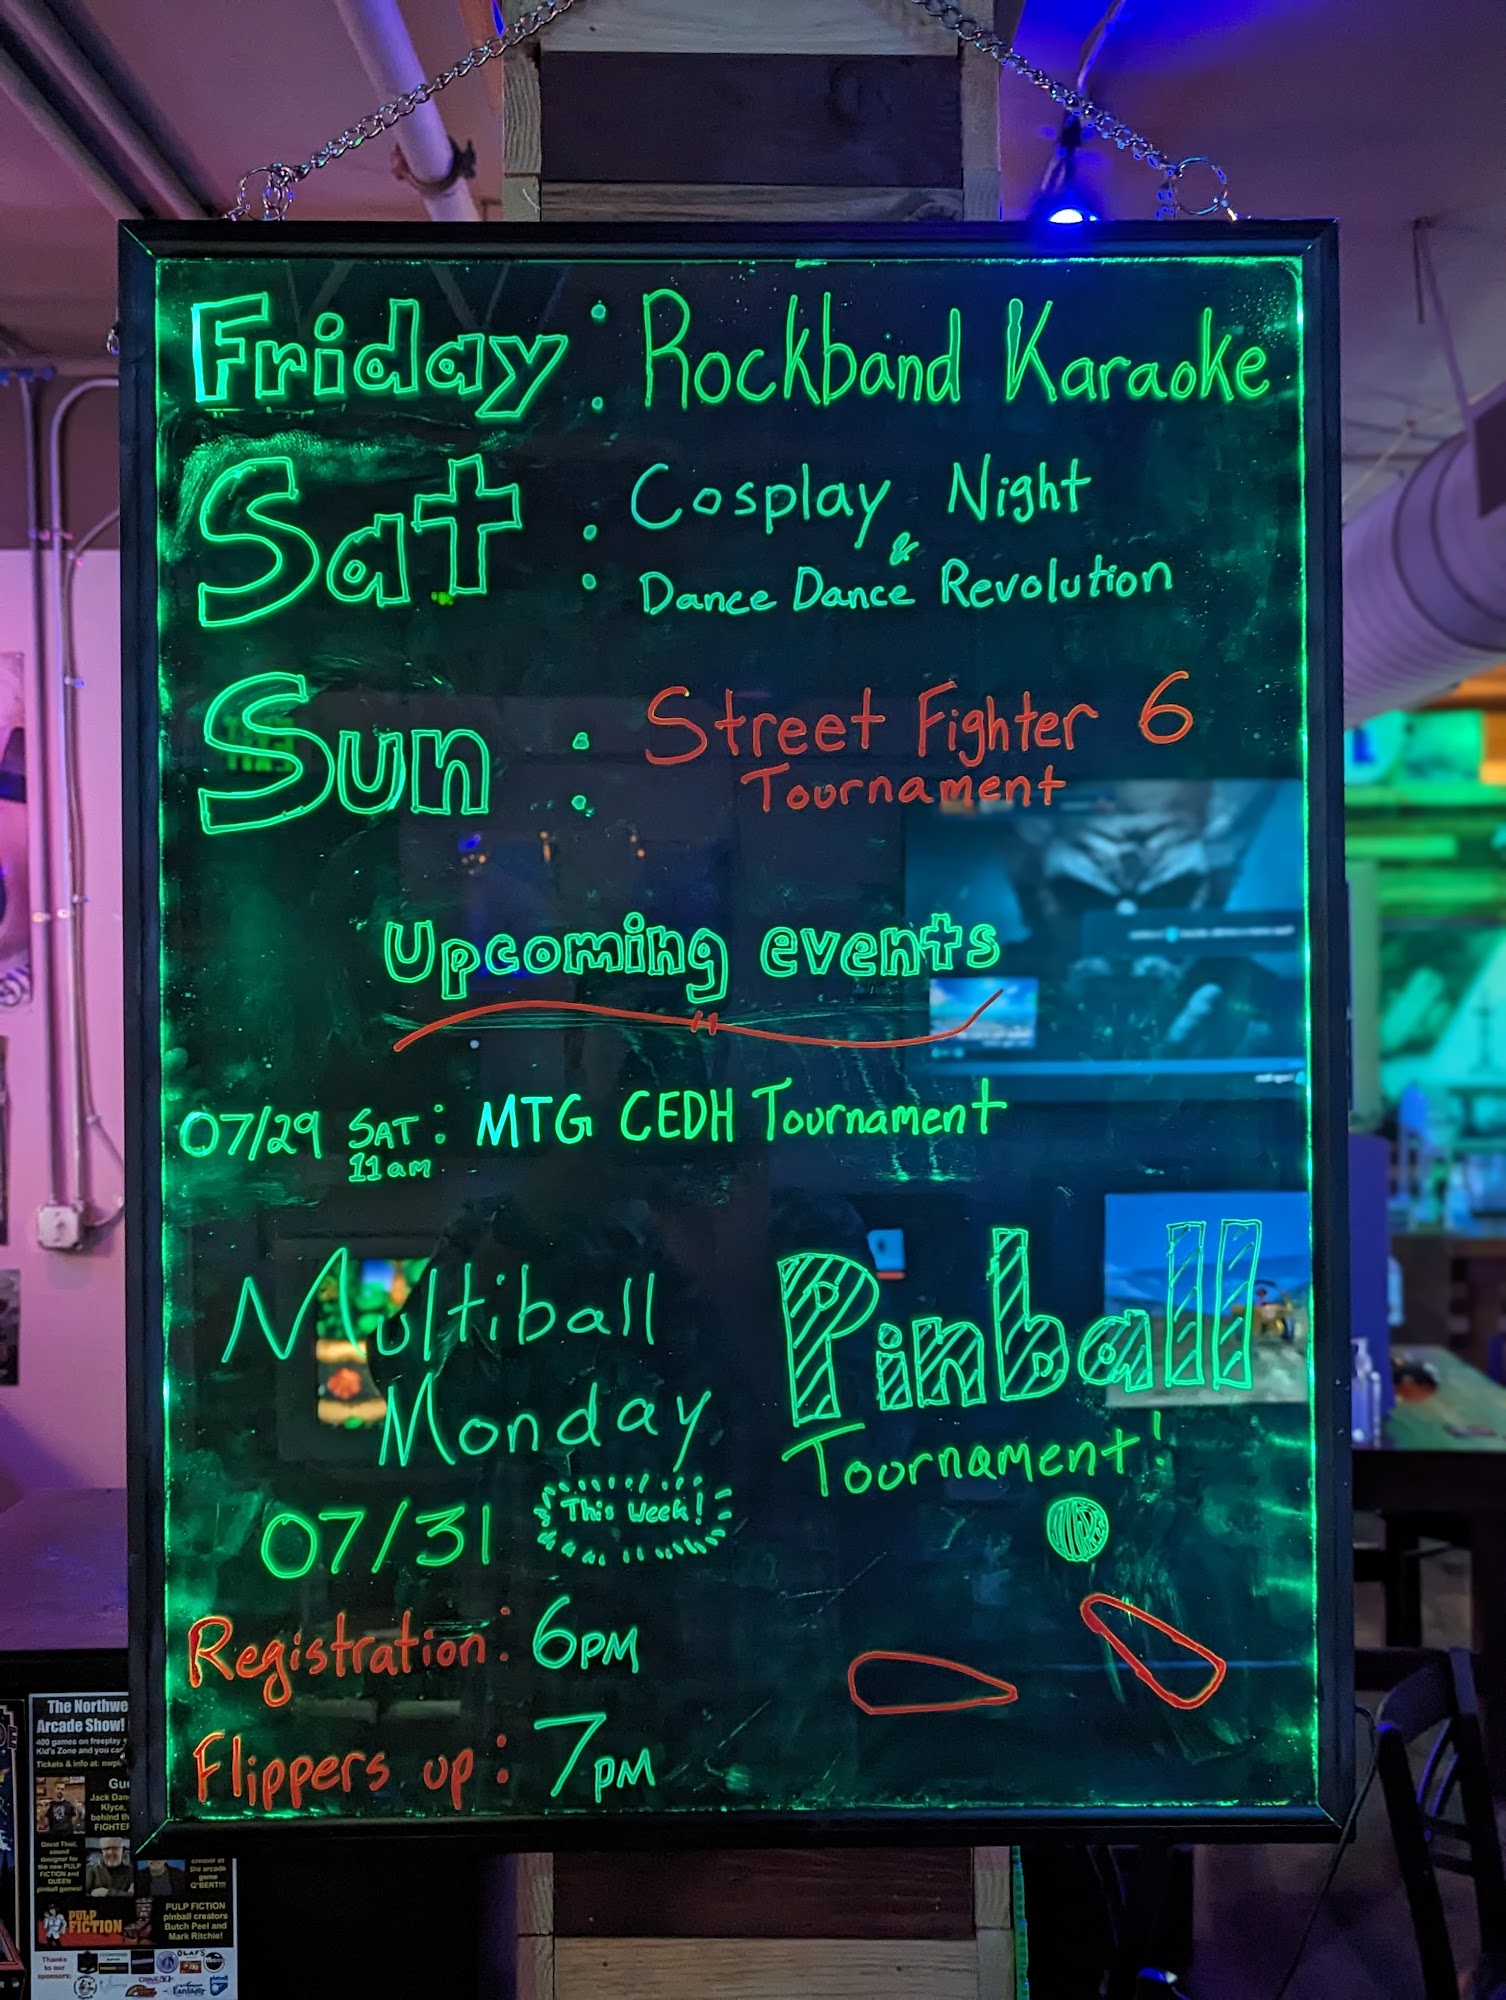 Friday : Rockband Karaoke
Sat : Cosplay Night
&
Dance Dance Revolution
Sun : Street Fighter 6
Tournament
Upcoming events
07/29 SAT : MTG CEDH Tournament
11am
Multiball
Monday
07/31 This Week!
Pinball
Tournament!
Registration : 6PM
Flippers up : 7PM
The Northwe
Arcade Show!
400 games on freeplay
Kid's Zone and you ca
Tickets & info at: nwp
Gu
Jack Dan
Klyce,
behind th
FIGHTER
David Thiel,
sound
designer for
the new PULP
FICTION and
QUEEN
pinball games!
the arcade
game
Q*BERT!!!
PULP
FICTION
PULP FICTION
pinball creators
Butch Peel and
Mark Ritchie!
Thanks
to our
sponsors: